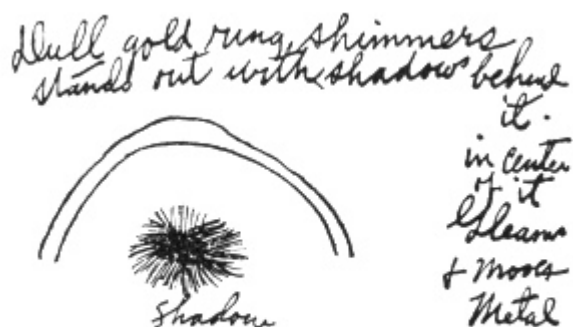 Dull gold ring, shimmers
stands out with shadows behind
it.
in center
of it
Gleams
& moves
Metal
Shadow